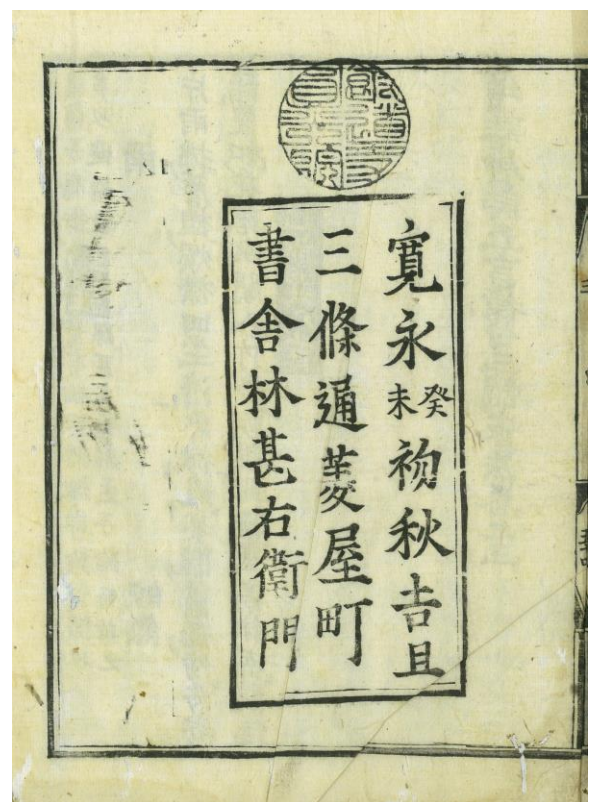 寛永癸未初秋吉旦
三條通菱屋町
書舎林甚右衛門